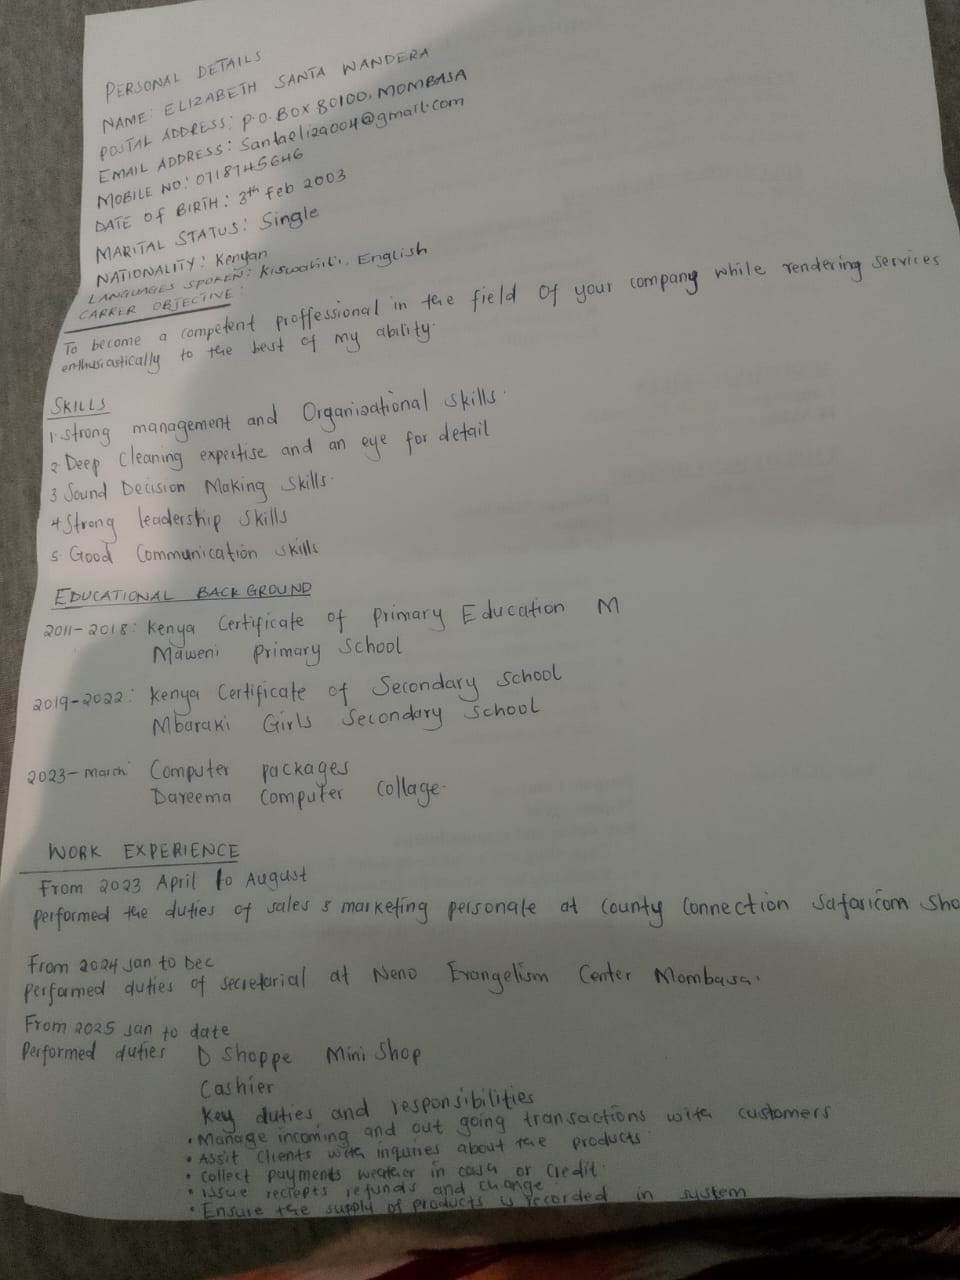 PERSONAL DETAILS
NAME: ELIZABETH SANTA WANDERA
POSTAL ADDRESS: P.O. BOX 80100, MOMBASA
EMAIL ADDRESS: Santaeliza004@gmail.com
MOBILE NO: 0718745646
DATE OF BIRTH: 3th Feb 2003
MARITAL STATUS: Single
NATIONALITY: Kenyan
LANGUAGES SPOKEN: Kiswahili, English
CARRER OBJECTIVE:
To become a competent proffessional in the field of your company while rendering services
enthusiastically to the best of my ability.
SKILLS
1. Strong management and Organizational skills.
2. Deep Cleaning expertise and an eye for detail
3 Sound Decision Making Skills.
4 Strong leadership skills
5. Good Communication skills
EDUCATIONAL BACKGROUND
2011-2018: Kenya Certificate of Primary Education M
Maweni Primary School
2019-2022: Kenya Certificate of Secondary School
Mbaraki Girls Secondary School
2023-march: Computer packages
Dareema Computer Collage.
WORK EXPERIENCE
From 2023 April to August
Performed the duties of sales & marketing personale at County Connection Safaricom Sho
From 2024 Jan to Dec
Performed duties of secretarial at Neno Evangelism Center Mombasa.
From 2025 Jan to date
Performed duties D Shoppe Mini Shop
Cashier
Key duties and responsibilities
• Manage incoming and out going transactions with customers
• Assit Clients with inquires about the products
• Collect payments weather in cash or credit.
• Issue reciepts refunds and change
• Ensure the supply of products is recorded in system